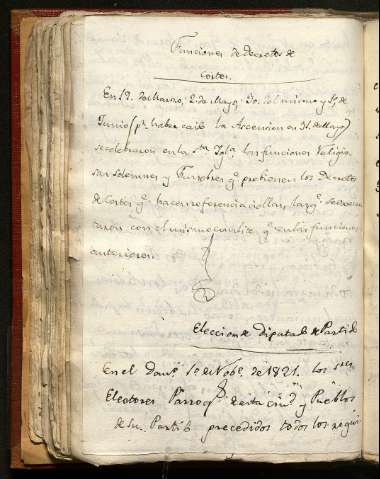 Funciones de Decretos de
Cortes.
En 19. de Marzo, 2. de Mayo, 30. del mismo y 1º de
Junio (pr. haber caido la Ascension en 31. de Mayo)
se celebraron en la Sta. Igla. las funciones Religio-
sas solemnes y Funebres q. previenen los Decretos
de Cortes q. hacen referencia à ellas, las q. se
con el mismo q. en las funciones
anteriores.
Eleccion de Diputado de Partido
En el Domº. 1º de Nobe. de 1821. los Sres.
Electores Parroqs. de esta ciud. y Pueblos
de su Partido precedidos todos los requi-